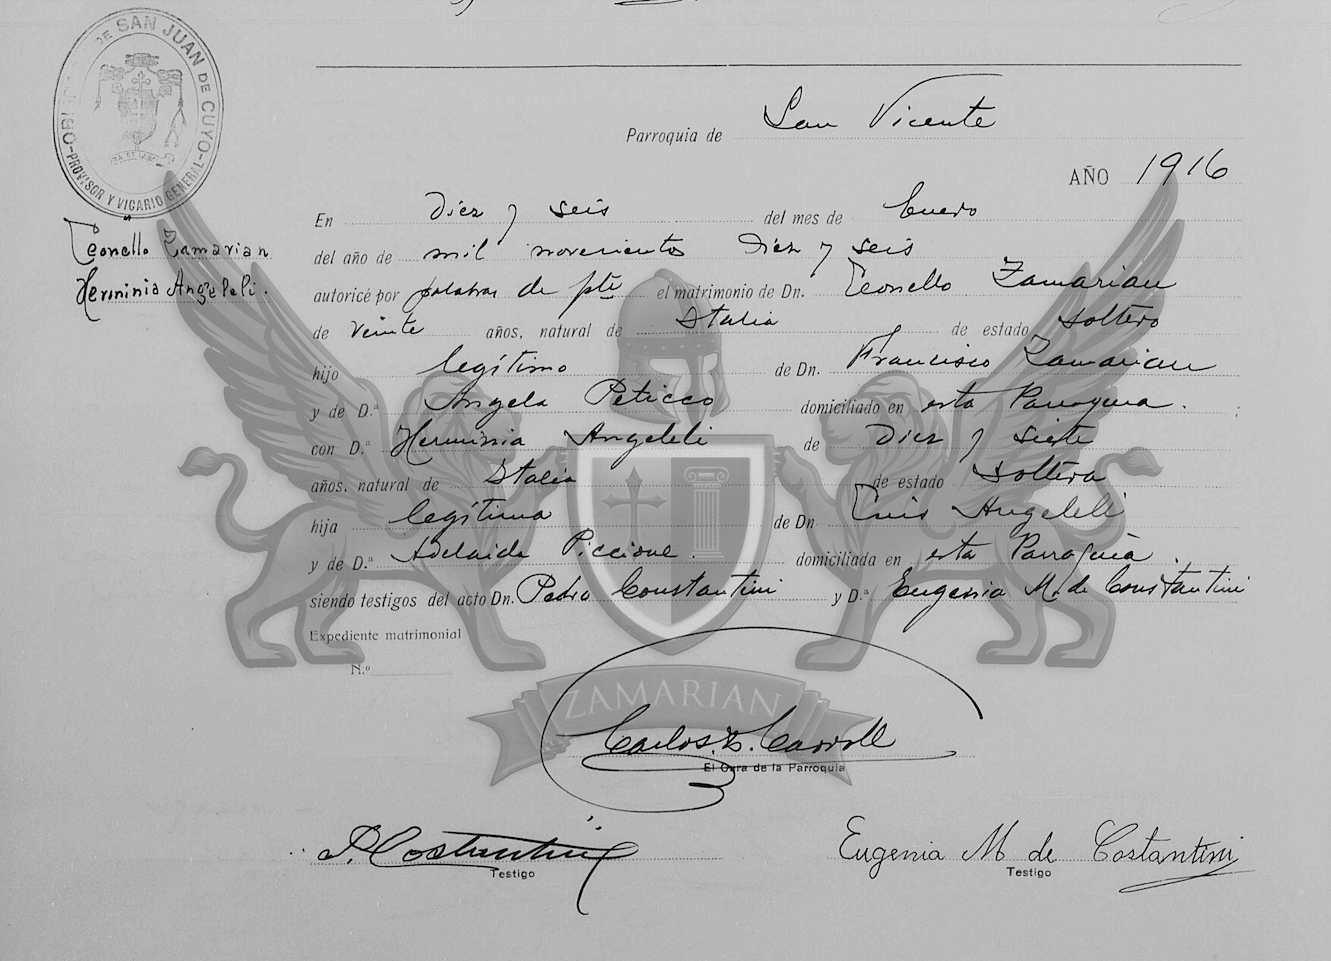 DE SAN JUAN DE CUYO-
PROVISOR Y VICARIO GENERAL-
Parroquia de San Vicente
AÑO 1916
Teonello Zamarian
Herminia Angeleli.
En Diez y seis del mes de Enero
del año de mil novecientos diez y seis
autoricé por palabras de pte el matrimonio de Dn. Teonello Zamarian
de veinte años, natural de Italia de estado soltero
hijo legítimo de Dn. Francisco Zamarian
y de D.ª Angela Peticco domiciliado en esta Parroquia.
con D.ª Herminia Angeleli de Diez y siete
años, natural de Italia de estado Soltera
hija legítima de Dn Luis Angeleli
y de D.ª Adelaida Piccione. domiciliada en esta Parroquia.
siendo testigos del acto Dn. Pedro Constantini y D.ª Eugenia M. de Constantini
Expediente matrimonial
N.º
ZAMARIAN
Carlos Z. Carroll
El Cura de la Parroquia
P. Costantini
Testigo
Eugenia M de Costantini
Testigo